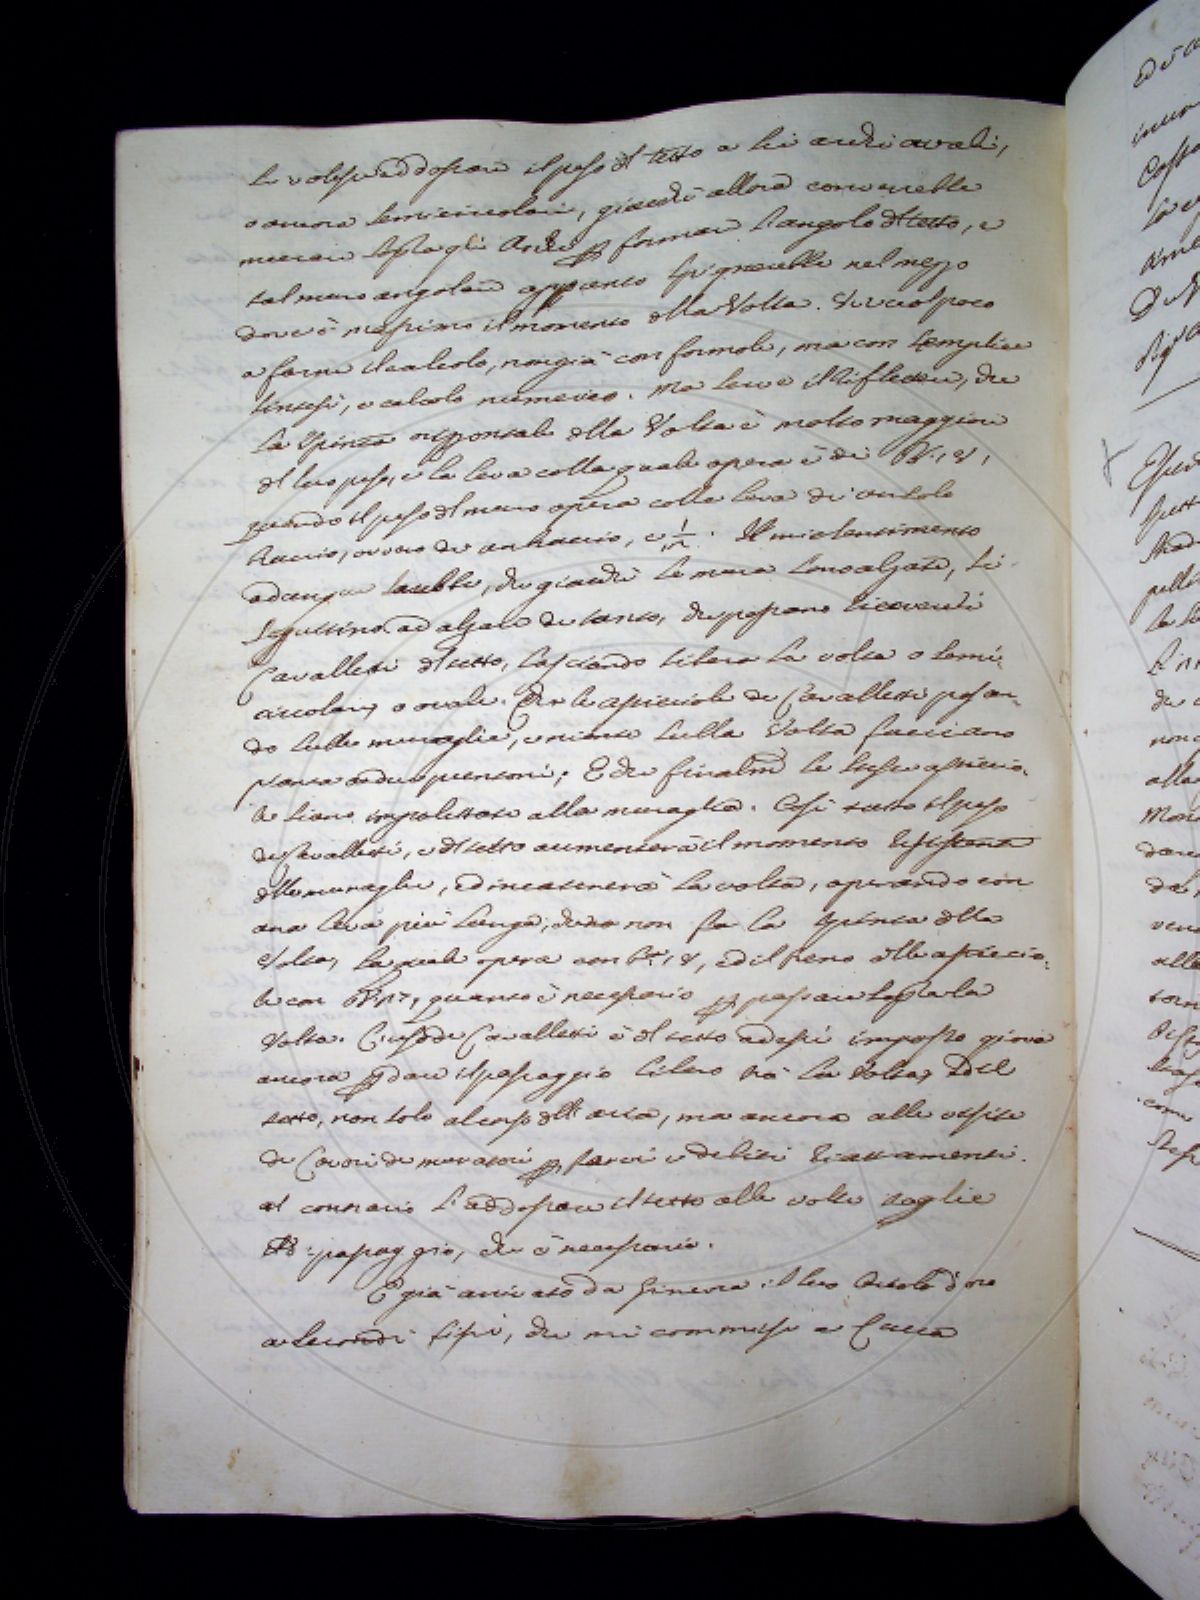 si volesse addossare il peso del tetto a sei archi ovali,
o ancora semicircolari, giacchè allora converrebbe
murare sopra gli Archi per formare l'angolo del tetto, e
tal muro angolare appunto spignerebbe nel mezzo
dove è massimo il momento della Volta. Vi vuol poco
a farne il calcolo, non già con formole, ma con semplice
sintesi, e calcolo numerico. Ma serve il riflettere, che
la spinta orizontale della Volta è molto maggiore
del suo peso, e la leva colla quale opera è di Br. 18,
quando il peso del muro opera colla leva di un solo
braccio, ovvero di un braccio, e 1/2. Il mio sentimento
adunque sarebbe, che giacchè le mura sono alzate, si
seguitino ad alzare di tanto, che possano ricevere li
Cavalletti del tetto, lasciando libera la volta o semi
circolare, o ovale. Che le asticciole de Cavalletti posan-
do sulle muraglie, e niente sulla Volta facciano
; E che finalmte le stesse asticcio-
le siano impalettate alla muraglia. Così tutto il peso
de Cavalletti, e del tetto aumenterà il momento resistenza
delle muraglie, ed incatenerà la volta, operando con
una leva più lunga, che non fa la spinta della
Volta, la quale opera con br. 18, ed il freno delle asticcio-
le con Br. quanto è necessario per passare sopra la
Volta. L'uso de Cavalletti e del tetto ad essi imposto giova
ancora per dare il passaggio libero trà la Volta, ed il
tetto, non solo al corso dell' aria, ma ancora alle visite
de Lavori de muratori per farvi i debiti riattamenti.
al contrario l'addossare il tetto alle volte toglie
passaggio, che è necessario.
E già arrivato da Ginevra il suo Oriolo d'oro
a secondi fissi, che mi commise a Lucca